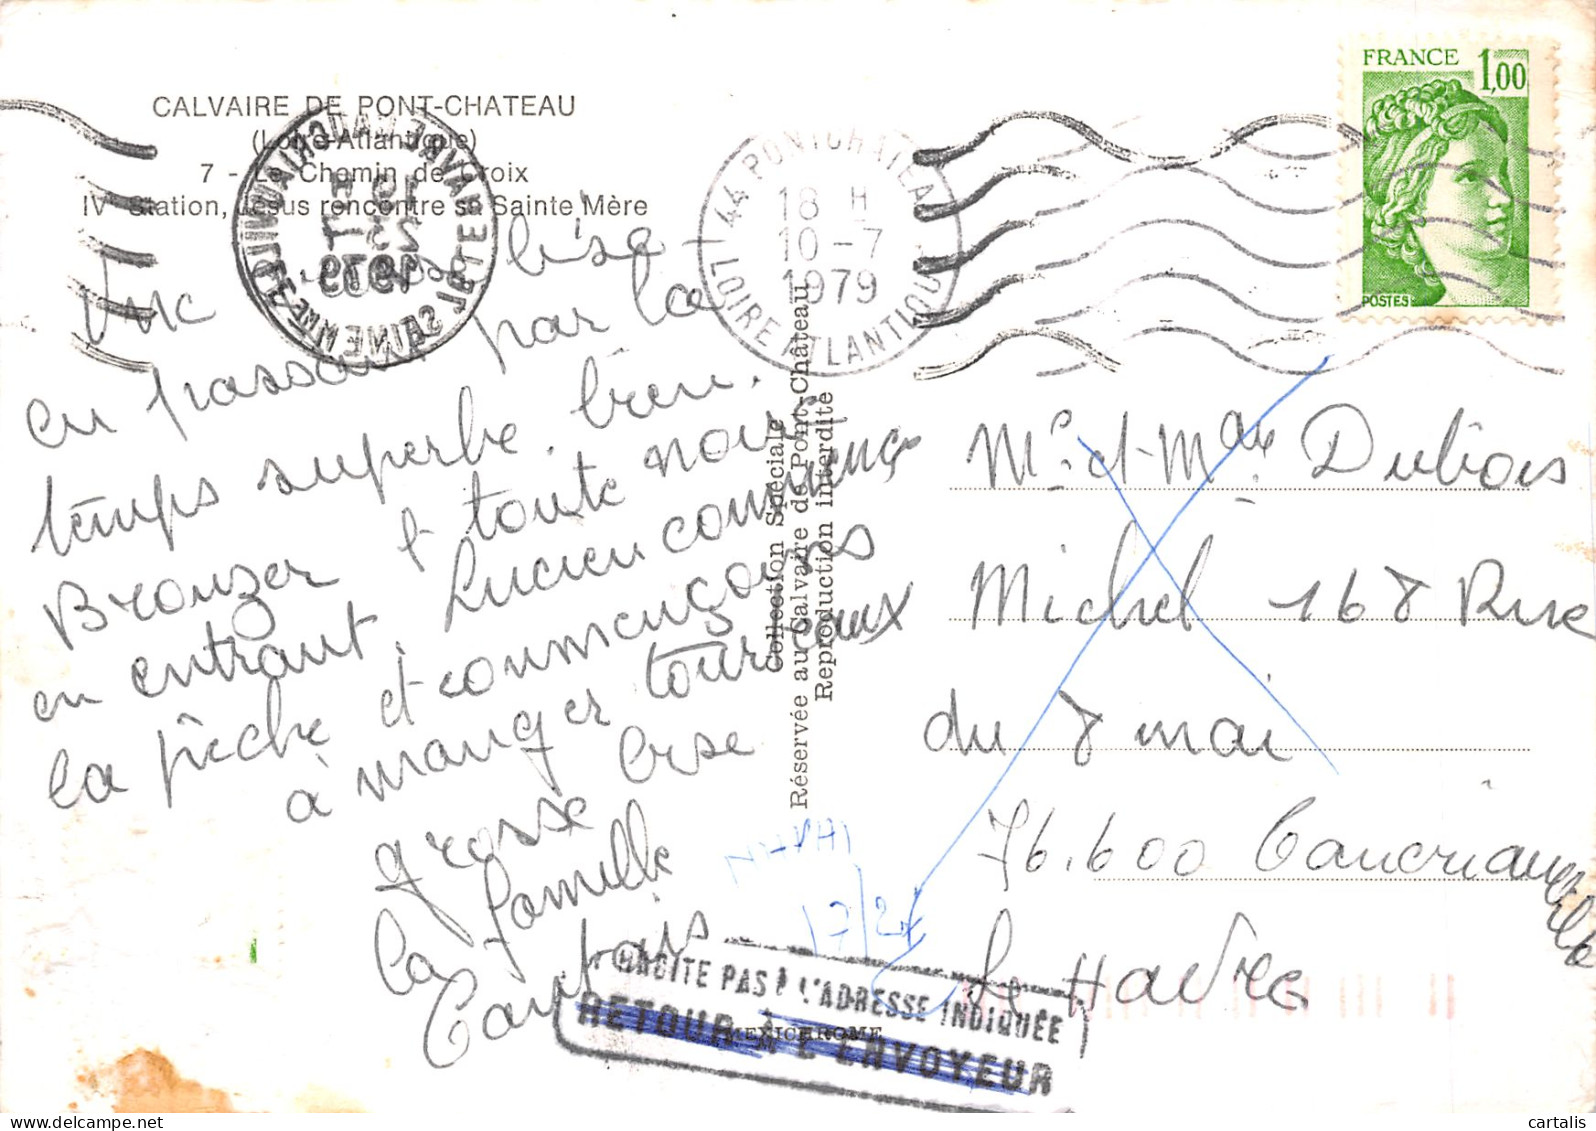 CALVAIRE DE PONT-CHATEAU
(Loire-Atlantique)
7 - Le Chemin de Croix
IV Station, Jésus rencontre sa Sainte Mère
FRANCE 1,00
POSTES
44 PONTCHATEAU
18 H
10-7
1979
LOIRE ATLANTIQUE
Une bise
en passant par la
temps superbe. bien.
Bronzer toute noir
en entrant. Lucien commence
la pêche et commençons
à manger tourteaux
grosse bise
la famille
Collection Spéciale
Réservée au Calvaire de Pont-Château
Reproduction interdite
Mr. et Mme Dubois
Michel 168 Rue
du 8 mai
76.600
Le Havre
N'HABITE PAS À L'ADRESSE INDIQUÉE
RETOUR À L'ENVOYEUR
MEXICHROME
cartalis